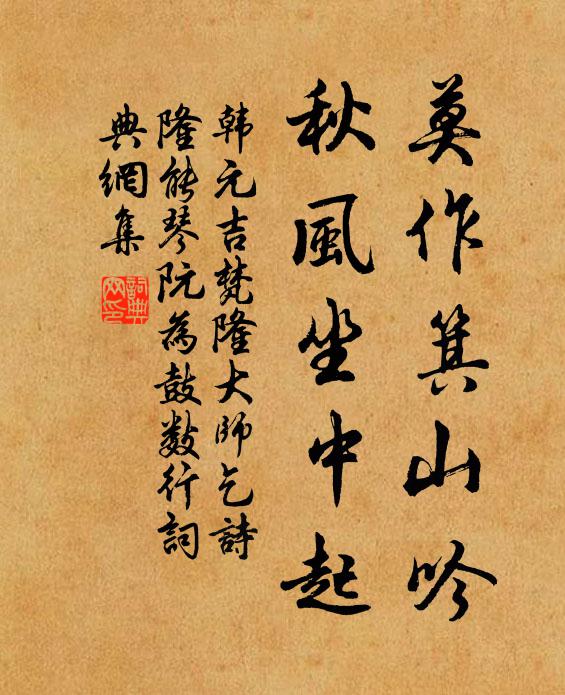 莫作箕山吟
秋風坐中起
韩元吉梵隆大师乞詩
隆能琴阮為鼓数行詞
典網集
詞典網印